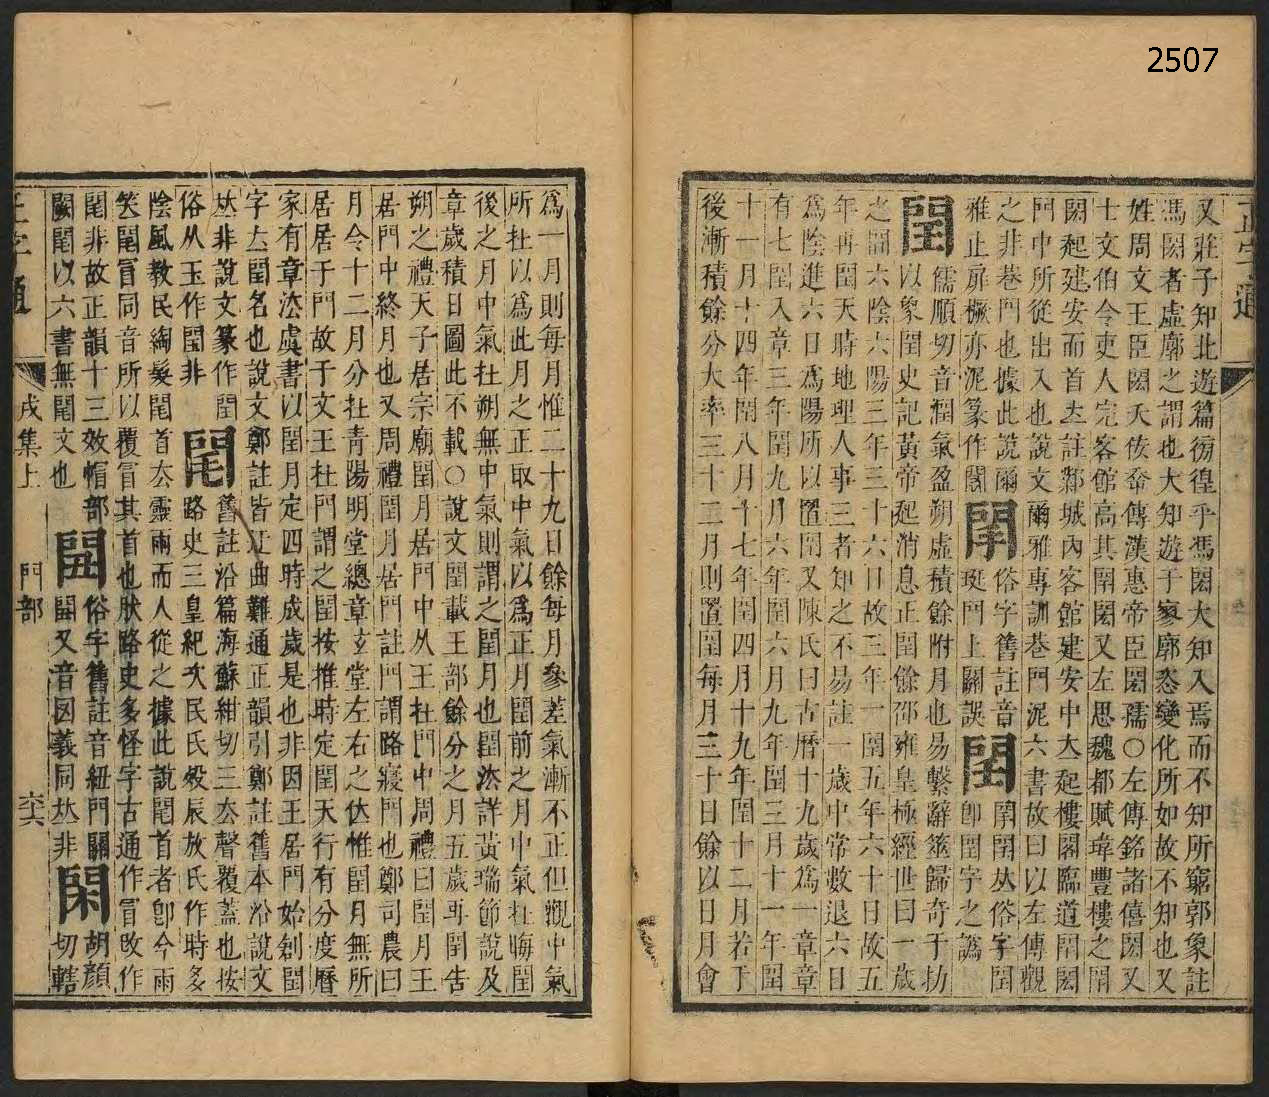 2507
正字通
又莊子知北遊篇彷徨乎馮閎大知入焉而不知所窮郭象註
馮閎者虛廓之謂也大知遊于寥廓恣變化所如故不知也又
姓周文王臣閎夭佚弇傳漢惠帝臣閎孺〇左傳銘諸僖閎又
士文伯令吏人完客館高其閈閎又左思魏都賦瑋豐樓之閈
閎起建安而首𠀤註鄴城內客館建安中𠀤起樓閣臨道閈閎
門中所從出入也說文爾雅專訓巷門泥六書故曰以左傳觀
之非巷門也據此說爾 俗字舊註音 閈閏𠀤俗字閏
雅止扉橛亦泥篆作閎 斑門上關誤 卽閏字之譌
閏儒順切音潤氣盈朔虛積餘附月也易繫辭筮歸奇于扐
以象閏史記黃帝起消息正閏餘邵雍皇極經世曰一歲
之閏六陰六陽三年三十六日故三年一閏五年六十日故五
年再閏天時地理人事三者知之不易註一歲中常數退六日
爲陰進六日爲陽所以置閏又陳氏曰古曆十九歲爲一章章
有七閏入章三年閏九月六年閏六月九年閏三月十一年閏
十一月十四年閏八月十七年閏四月十九年閏十二月若于
後漸積餘分大率三十二月則置閏每月三十日餘以日月會
爲一月則每月惟二十九日餘每月參差氣漸不正但觀中氣
所在以爲此月之正取中氣以爲正月閏前之月中氣在晦閏
後之月中氣在朔無中氣則謂之閏月也閏法詳黃瑞節說及
章歲積日圖此不載〇說文閏載王部餘分之月五歲再閏告
朔之禮天子居宗廟閏月居門中从王在門中周禮曰閏月王
居門中終月也又周禮閏月居門註門謂路寢門也鄭司農曰
月令十二月分在青陽明堂總章玄堂左右之位惟閏月無所
居居于門故于文王在門謂之閏按推時定閏天行有分度曆
家有章法虞書以閏月定四時成歲是也非因王居門始創閏
字𠫤閏名也說文鄭註皆迂曲難通正韻引鄭註舊本沿說文
𠀤非說文篆作閏 舊註沿篇海蘇紺切三去聲覆蓋也按
俗从玉作閏非 路史三皇紀次民氏歿辰放氏作時多
陰風教民綯髮閐首去靈雨而人從之據此說閐首者卽今雨
笠閐冐同音所以覆冐其首也肰路史多怪字古通作冐改作
閐非故正韻十三效帽部 俗字舊註音紐門關 胡顏
闕閐以六書無閐文也 閪又音因義同𠀤非閑切轄
正字通 戌集上 門部 六